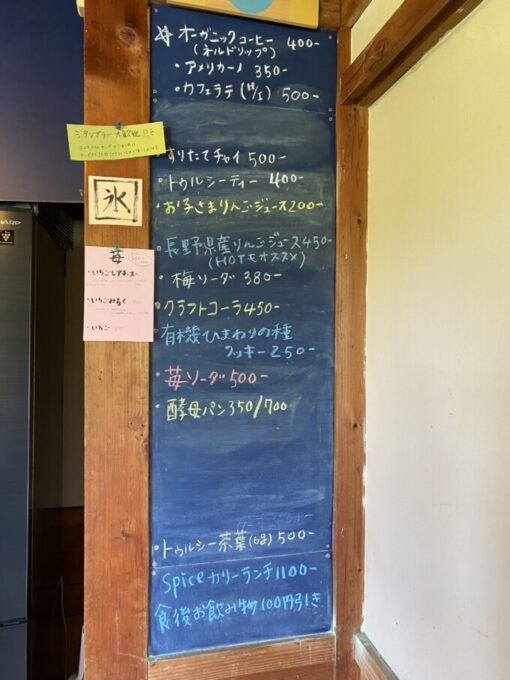 オーガニックコーヒー 400-
(ネルドリップ)
・アメリカーノ 350-
・カフェラテ (H/I) 500-
♪タンブラー大歓迎♪
すりたてチャイ 500-
・トゥルシーティー 400-
・お子さまりんごジュース200-
氷
・長野県産りんごジュース450-
(HOTもオススメ)
・梅ソーダ 380-
・クラフトコーラ450-
・有機ひまわりの種
クッキー250-
・苺ソーダ500-
・酵母パン350/700
苺
・いちごレアチーズ
・いちごみるく
・いちご
・トゥルシー茶葉 500-
Spiceカリーランチ1100-
食後お飲み物100円引き
SHARP